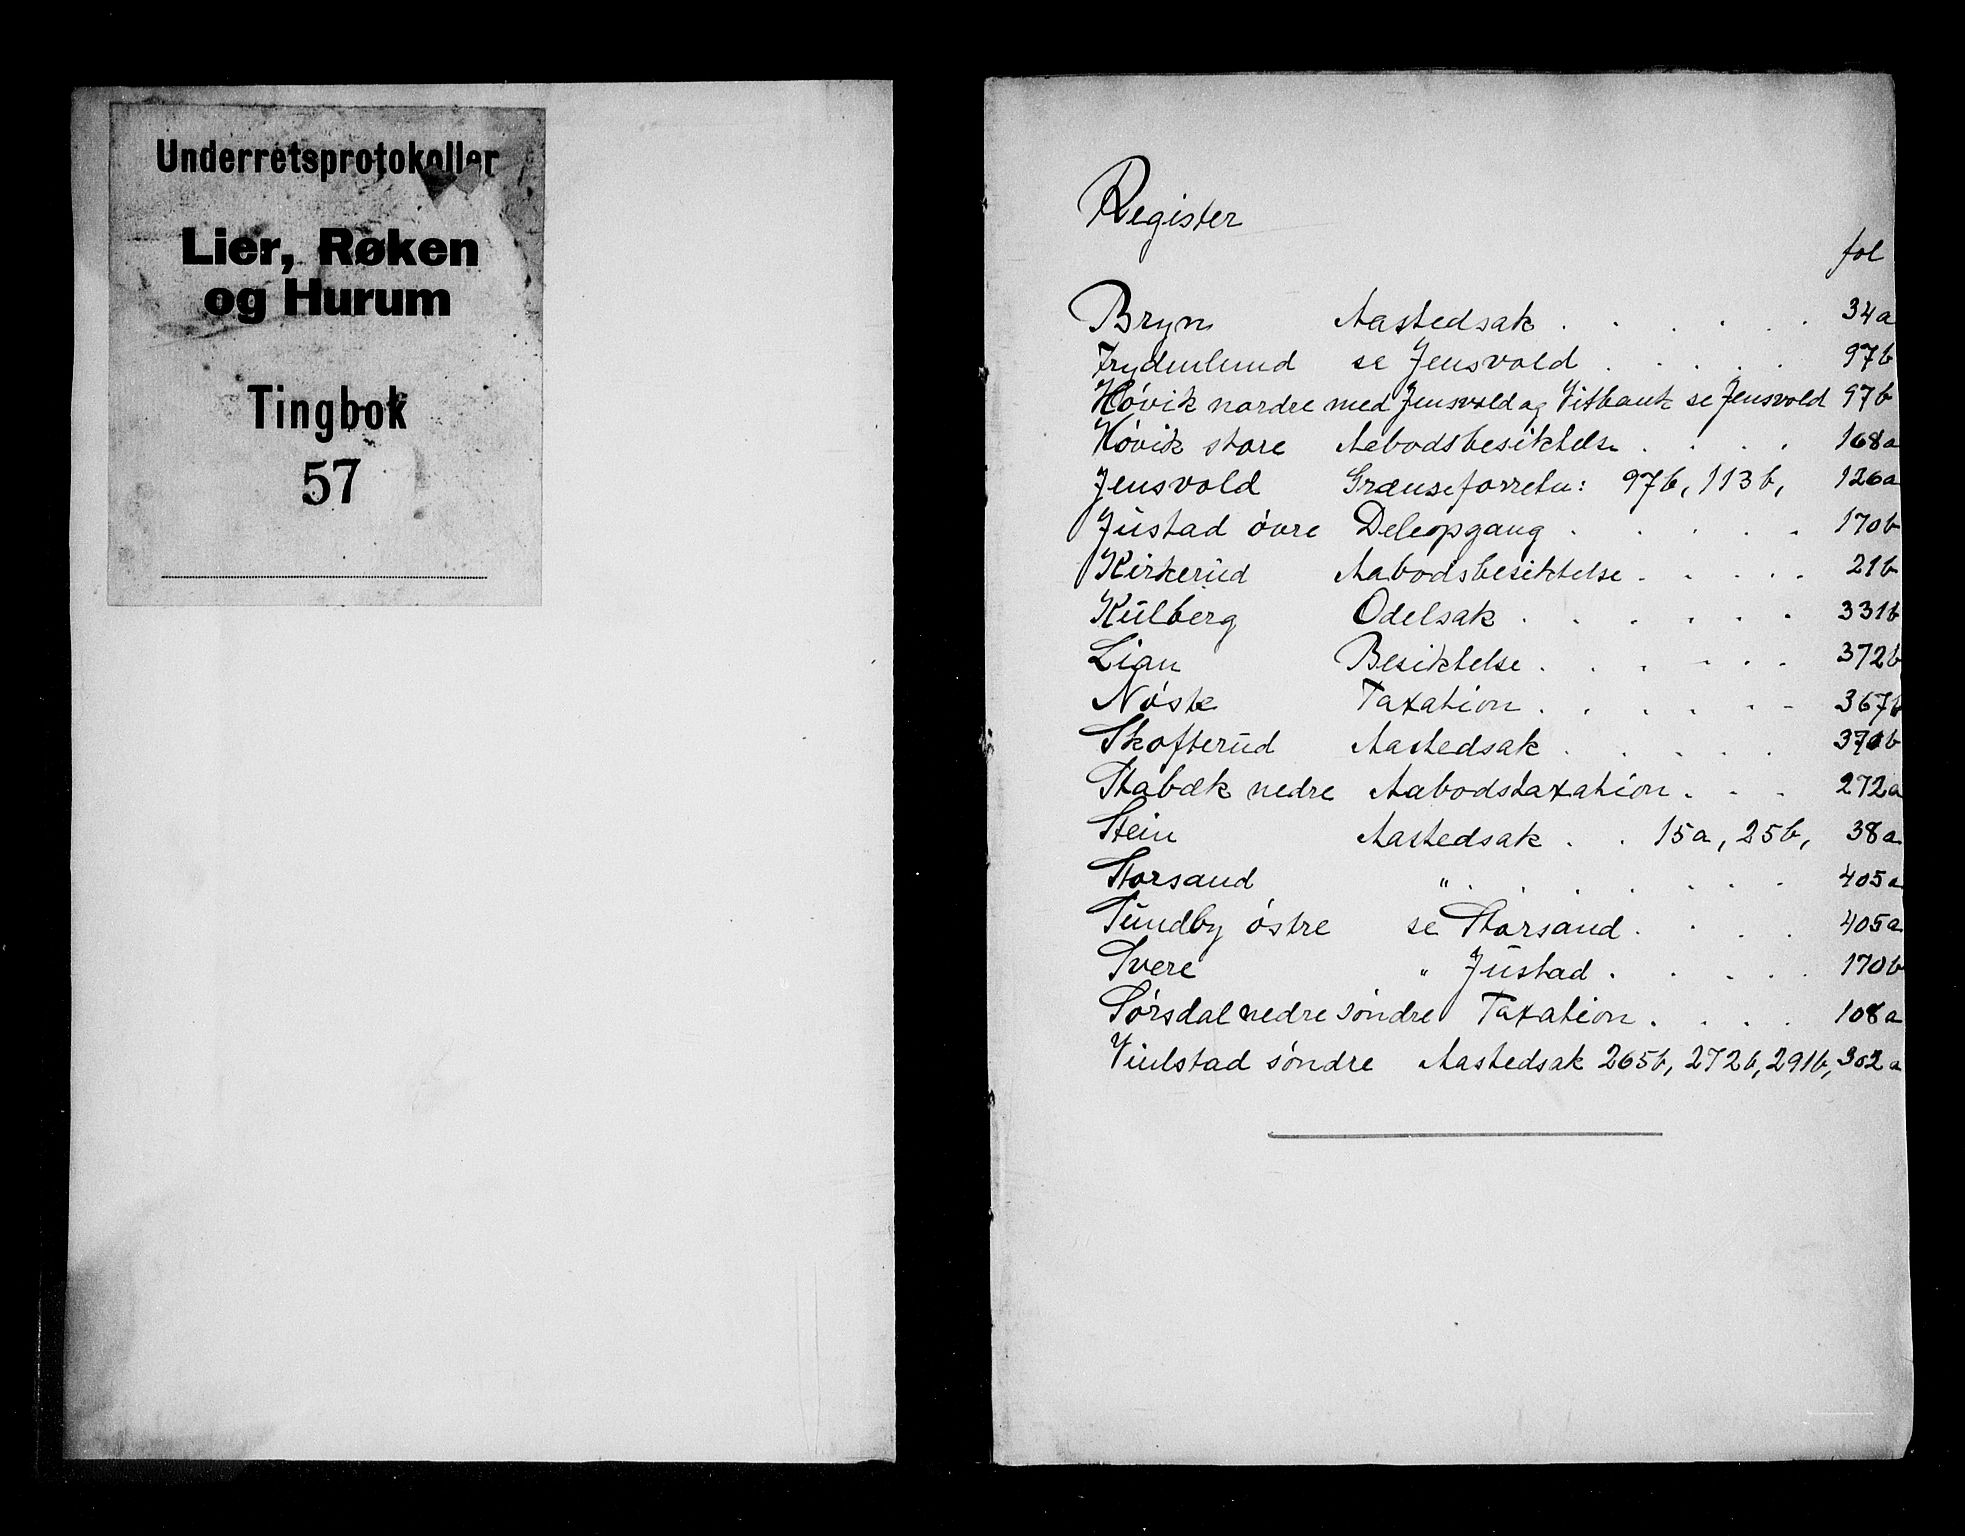 Underretsprotokoller
Lier, Røken
og Hurum
Tingbok
57
Register
fol
Bryn Aastedsak . . . . . 34a
Frydenlund se Jensvold . . . . 97b
Høvik nordre med Jensvold og Vitbank se Jensvold 97b
Høvik store Aabodsbesiktelse . . . . 168a
Jensvold Grænseforretn: 97b, 113b, 126a
Justad övre Deleopgang . . . . . 170b
Kirkerud Aabodsbesiktelse . . . . . 21b
Kulberg Odelsak . . . . . . 331b
Lian Besiktelse . . . . . . 372b
Nøste Taxation . . . . . . 367b
Skofterud Aastedsak . . . . . 370b
Stabæk nedre Aabodstaxation . . . 272a
Stein Aastedsak . . 15a, 25b, 38a
Storsand " . . . . . . . 405a
Sundby østre se Storsand . . . . 405a
Svere " Justad . . . . . 170b
Sørsdal nedre søndre Taxation . . . . 108a
Vinlstad søndre Aastedsak 265b, 272b, 291b, 302a